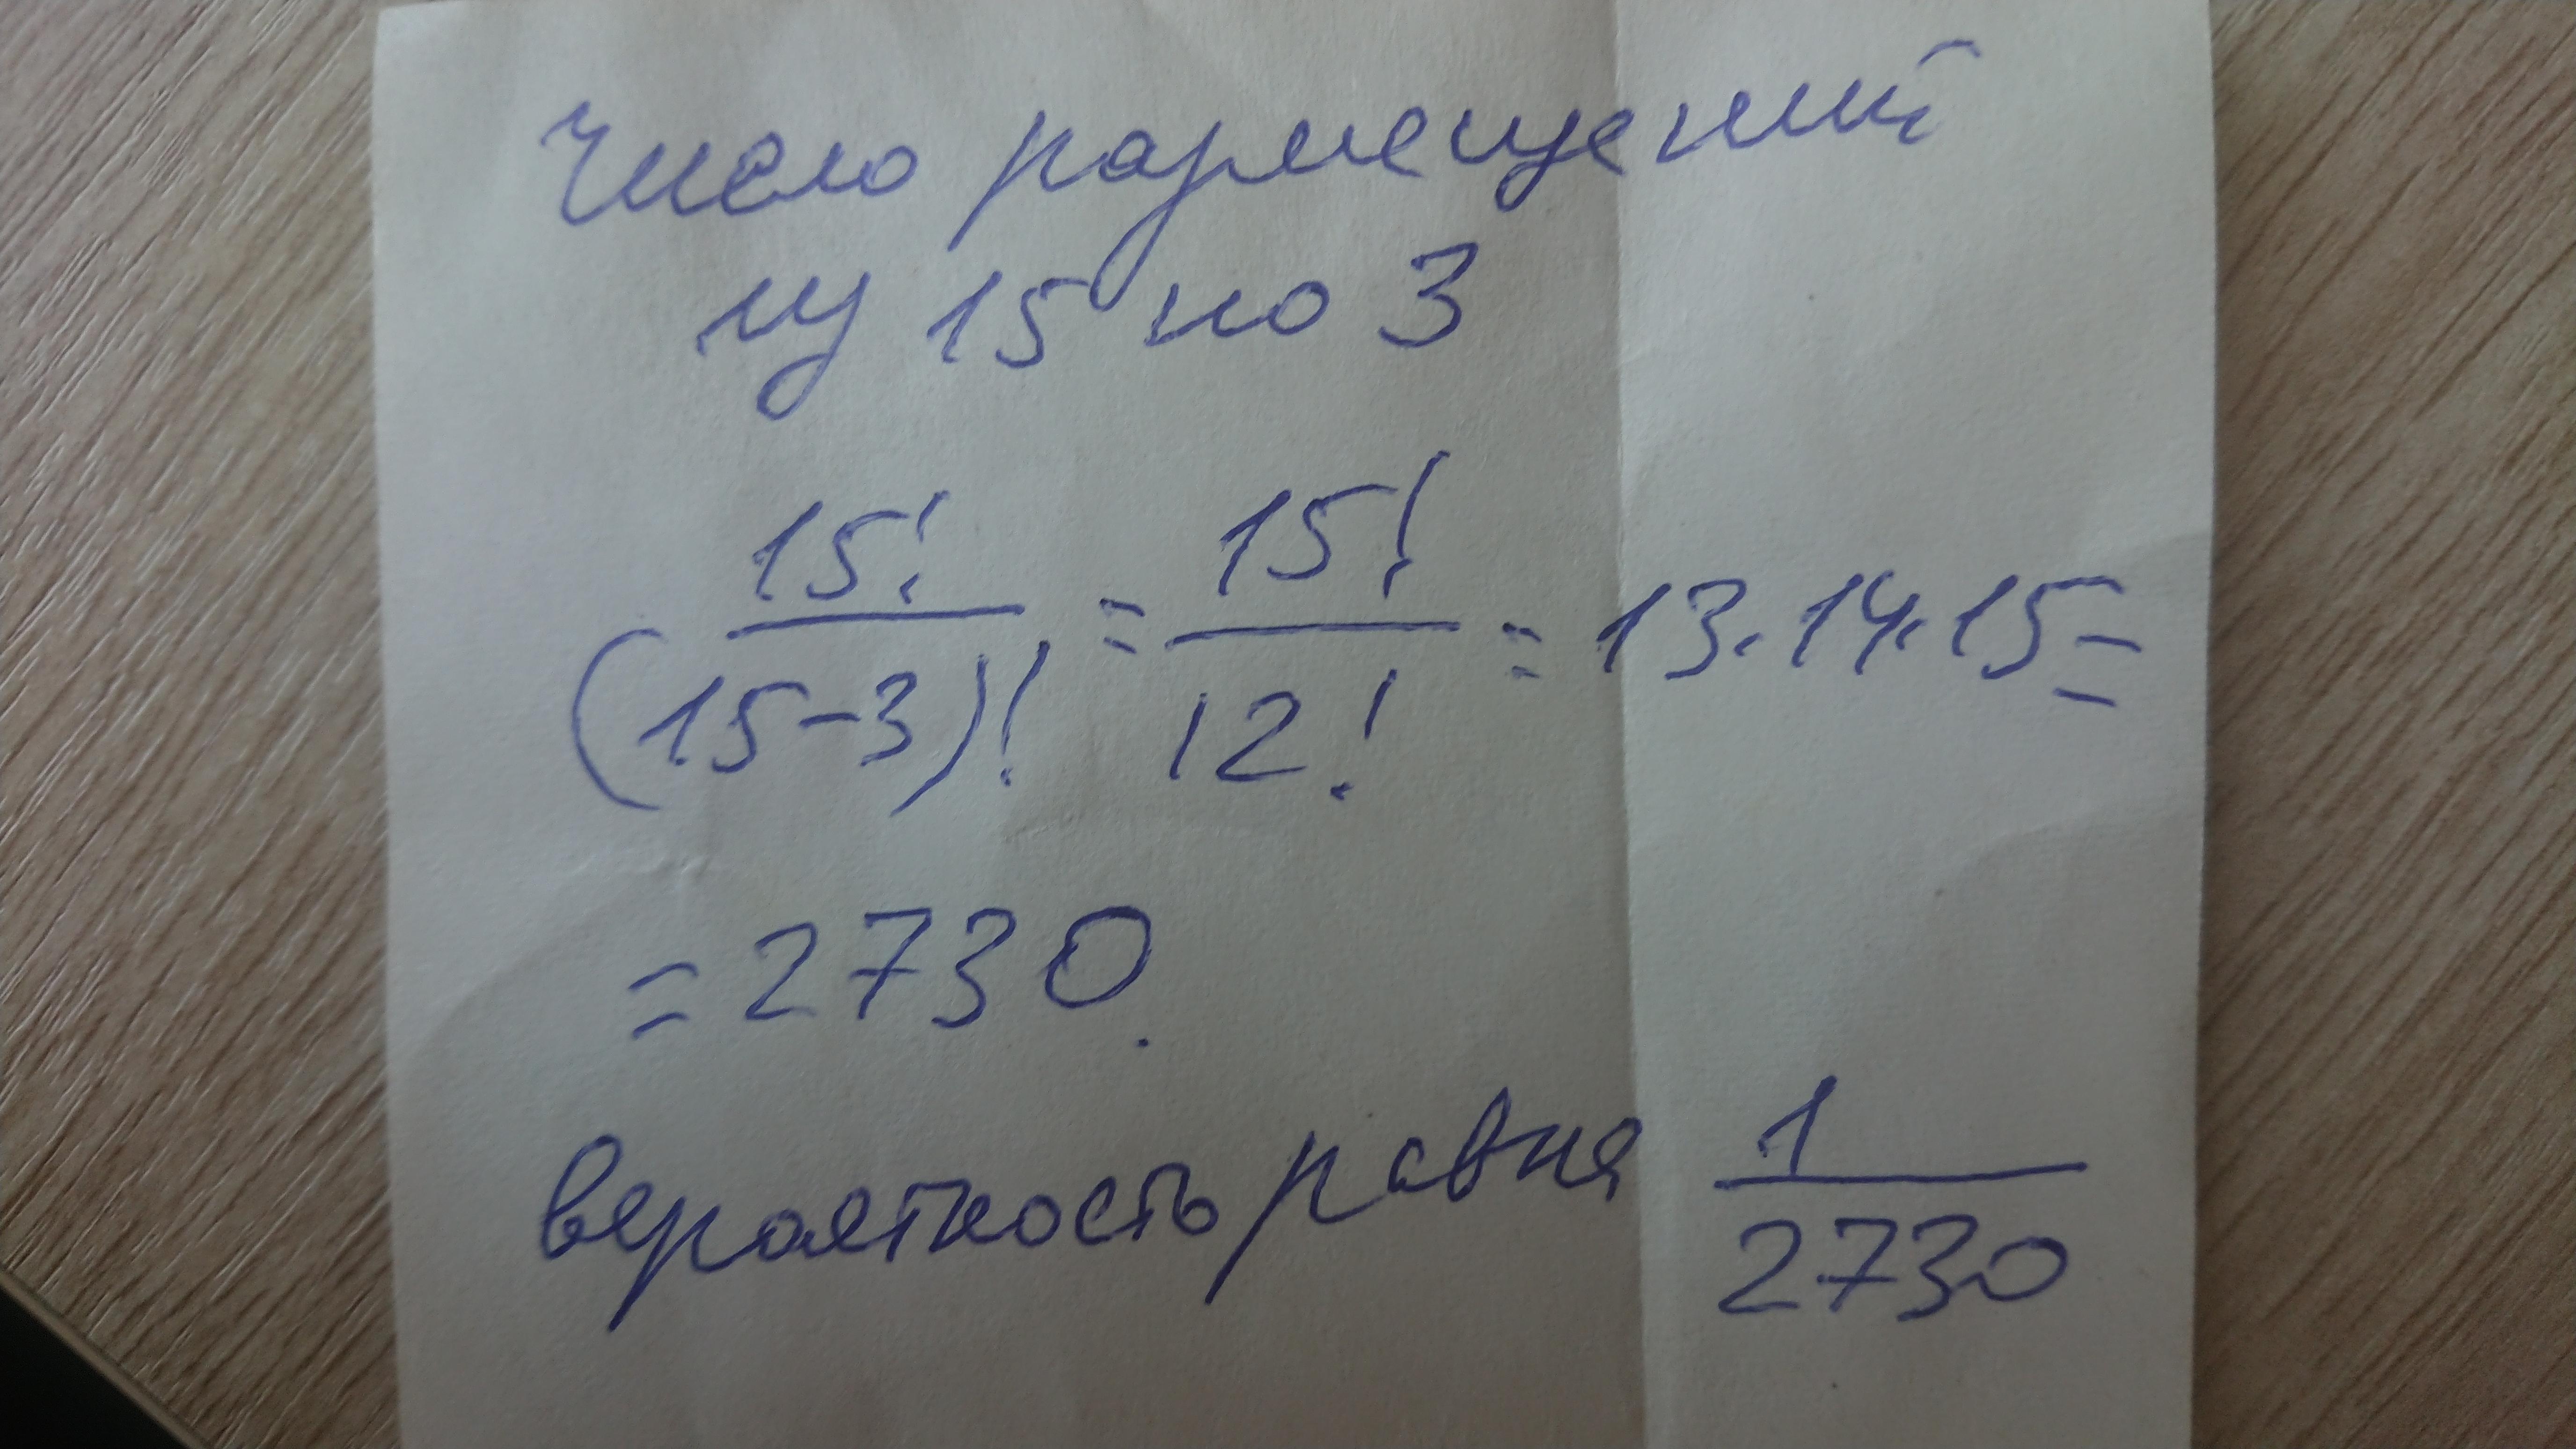 Число размещений
из 15 по 3
15! / (15-3)! = 15! / 12! = 13·14·15=
= 2730.
вероятность равна 1/2730